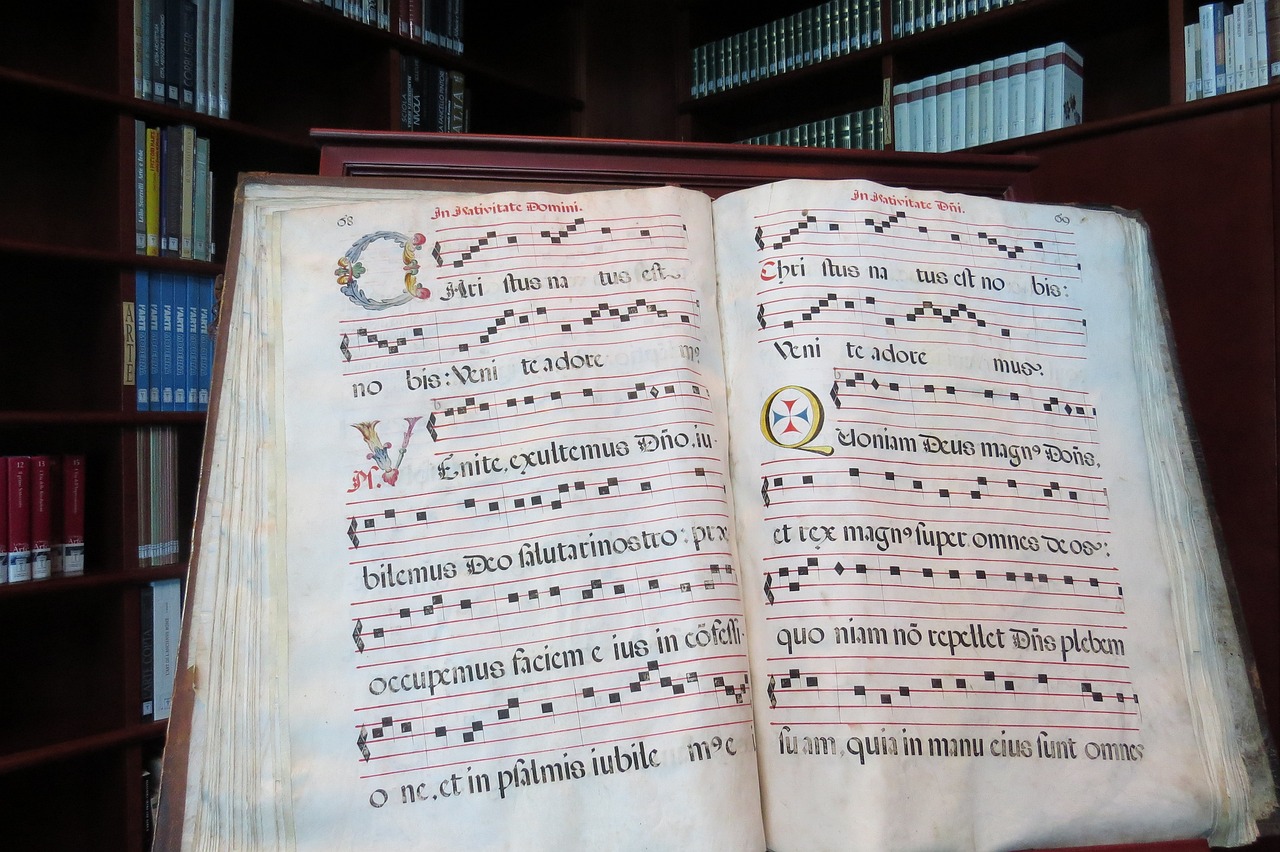 68
In Nativitate Domini.
CHri stus na tus est
no bis: Veni te adore m9
Ps. VEnite, exultemus Dño, iu-
bilemus Deo salutarinostro: præ
occupemus faciem e ius in cõfessi-
o ne, et in psalmis iubile m9 e
69
In Nativitate Dñi.
Chri stus na tus est no bis:
Veni te adore mus.
Quoniam Deus magn9 Doñs,
et rex magn9 super omnes deos:
quo niam nõ repellet Dñs plebem
suam, quia in manu eius sunt omnes
ARTE
L'ARTE
L'ARTE
L'ARTE
L'ARTE
L'ARTE